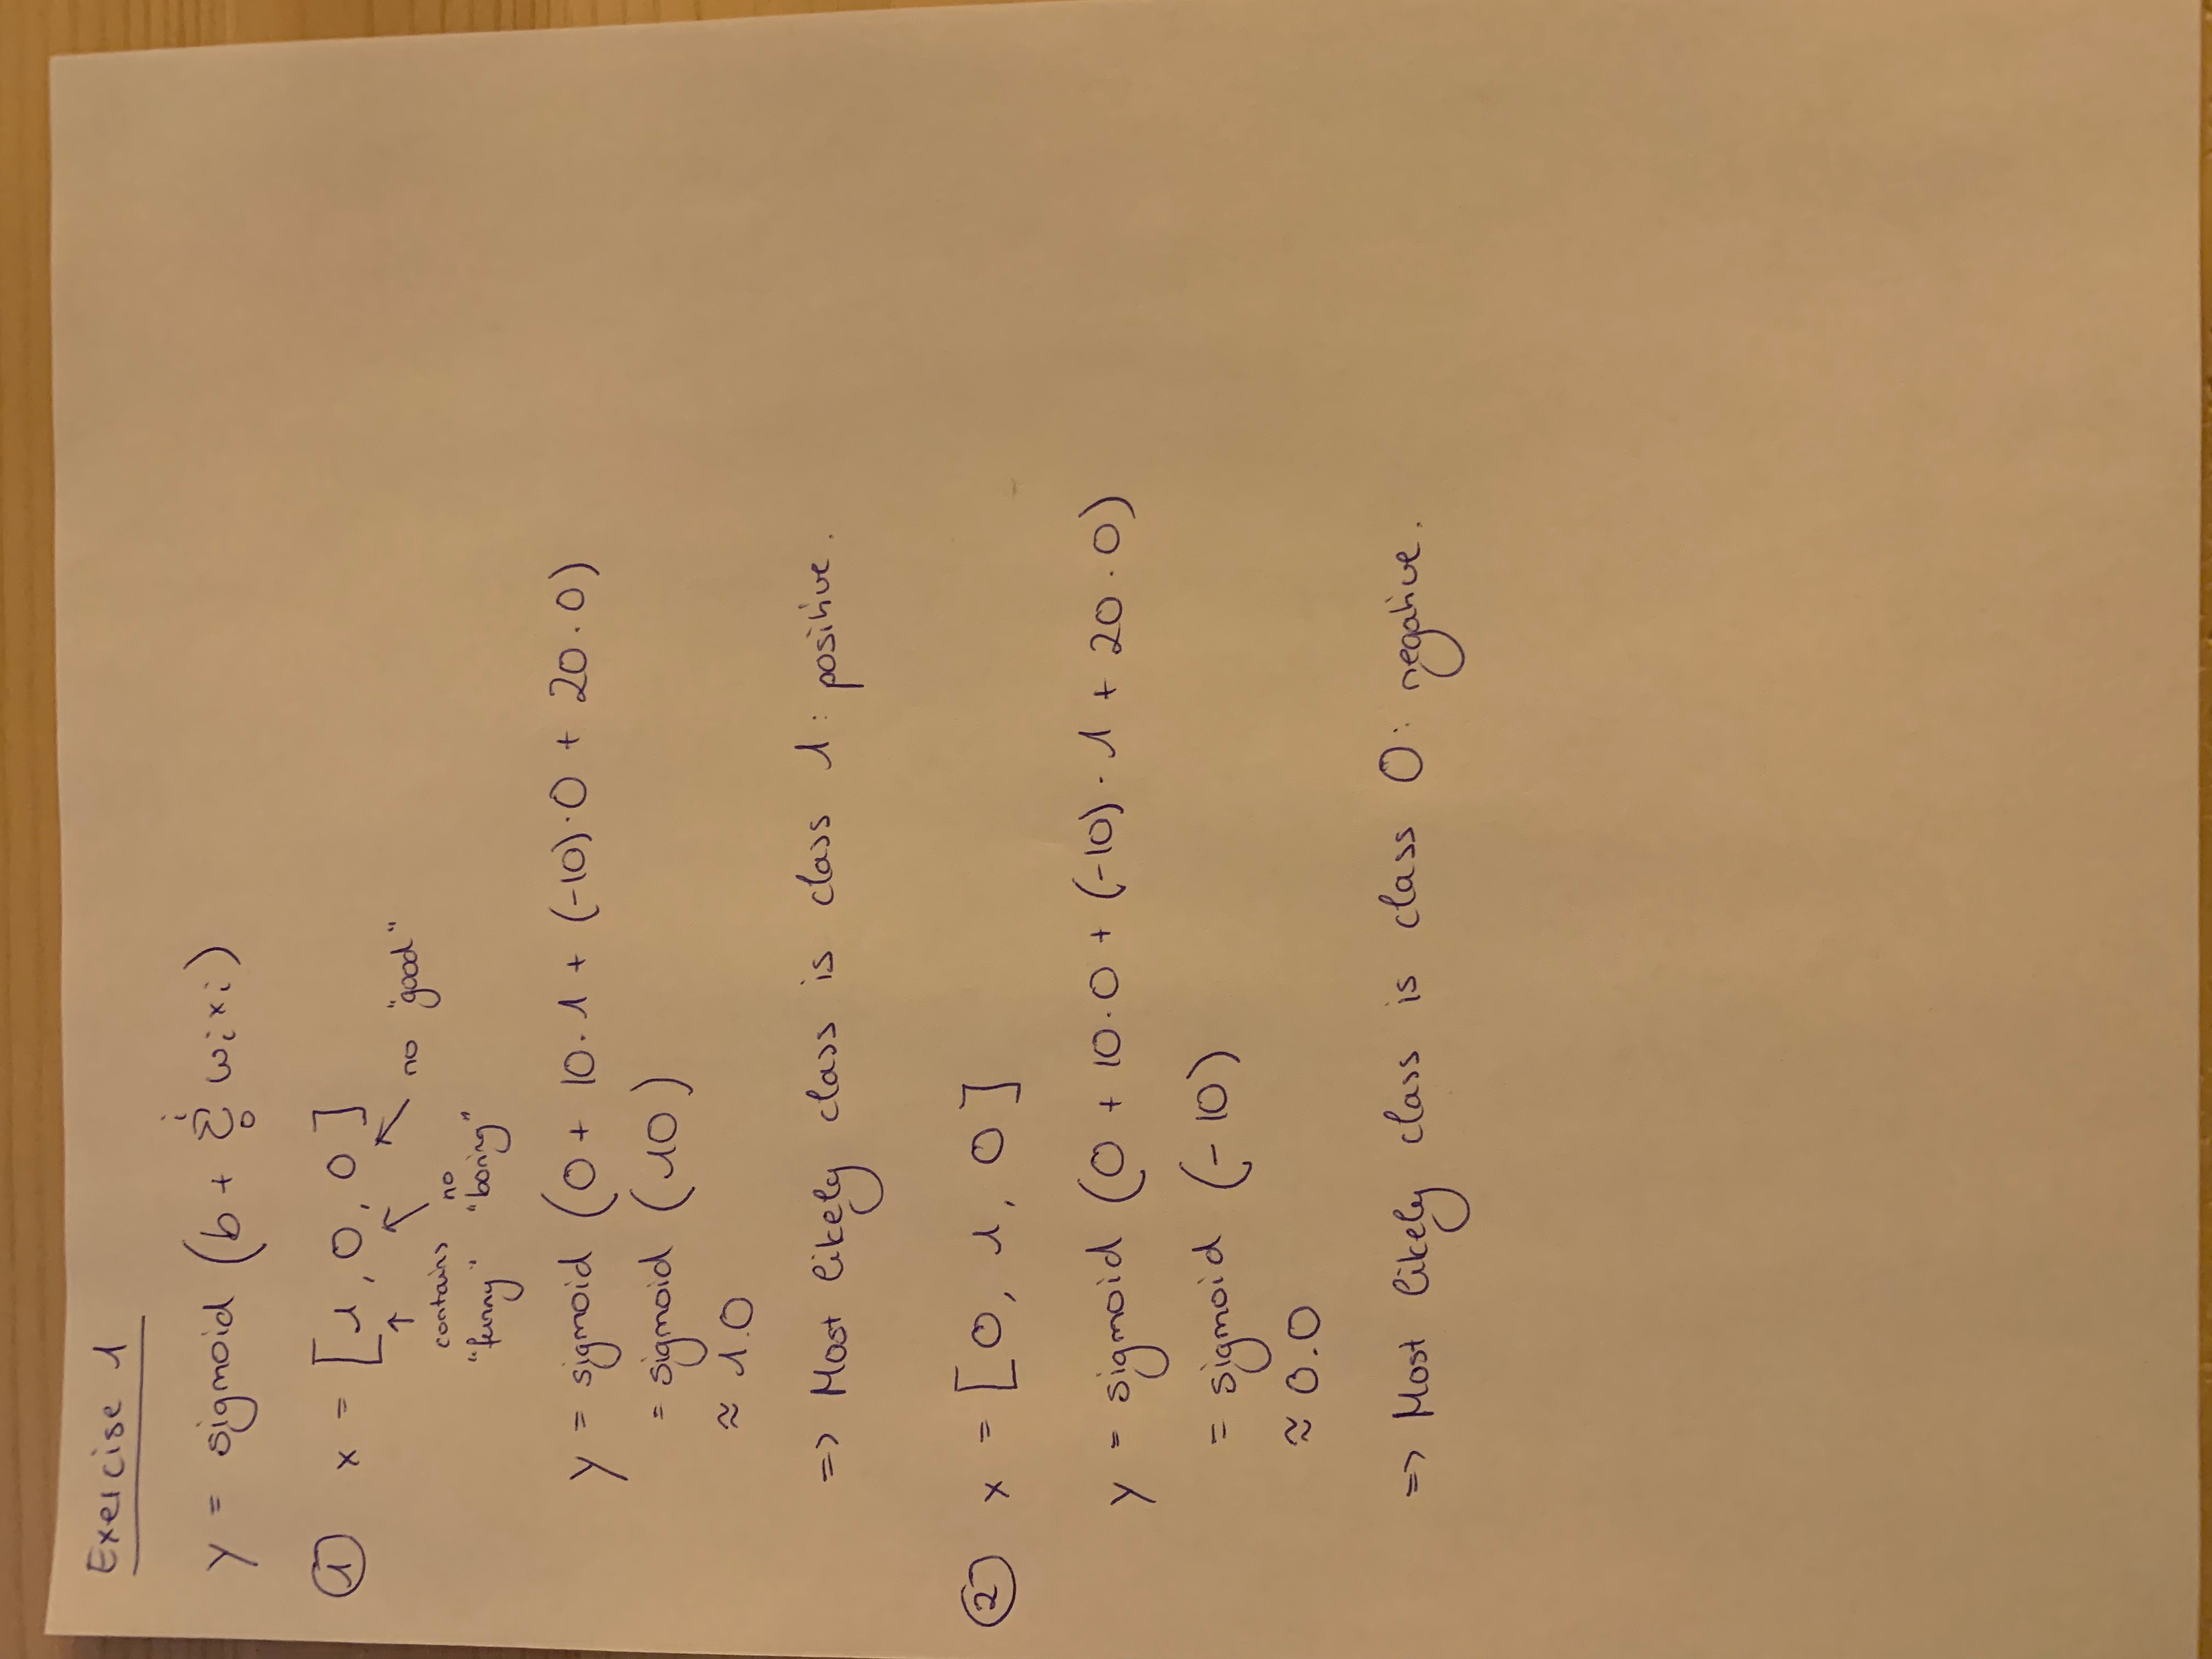 Exercise 1
y = sigmoid (b + i Σ 0 wixi)
① x = [1, 0, 0]
↑ ↖ ↖ no "good"
contains no
"funny" "boring"
y = sigmoid (0 + 10·1 + (-10)·0 + 20·0)
= sigmoid (10)
≈ 1.0
=> Most likely class is class 1: positive.
② x = [0, 1, 0]
y = sigmoid (0 + 10·0 + (-10)·1 + 20·0)
= sigmoid (-10)
≈ 0.0
=> Most likely class is class 0: negative.